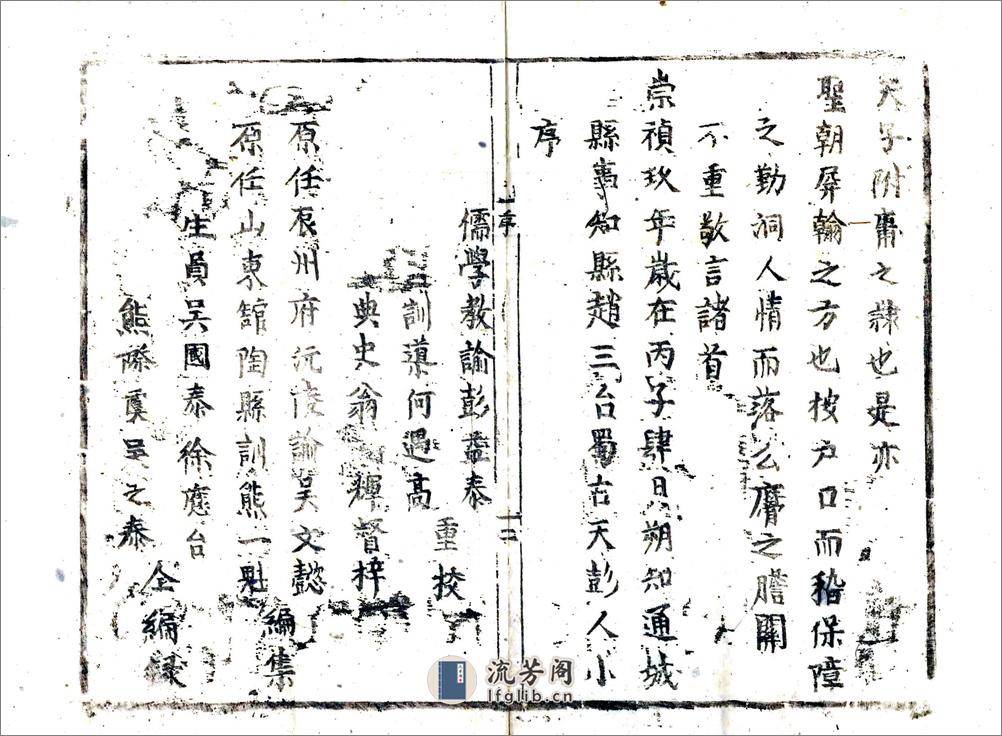 天子附庸之隸也是亦
聖朝屏翰之方也按戶口而稽保障
之勤洞人情而落么膺之膽關
不重敬言諸首
崇禎玖年歲在丙子肆月朔知通城
縣事知縣趙三台蜀古天彭人小
序
序
二
儒學教諭彭盖泰
訓導何遇高
重校
典史翁 輝督梓
原任辰州府沅陵諭吴文懿
原任山東舘陶縣訓熊一魁
編集
生員吴國泰徐應台
熊際虞吴之泰
仝編录
流芳阁
lfglib.cn